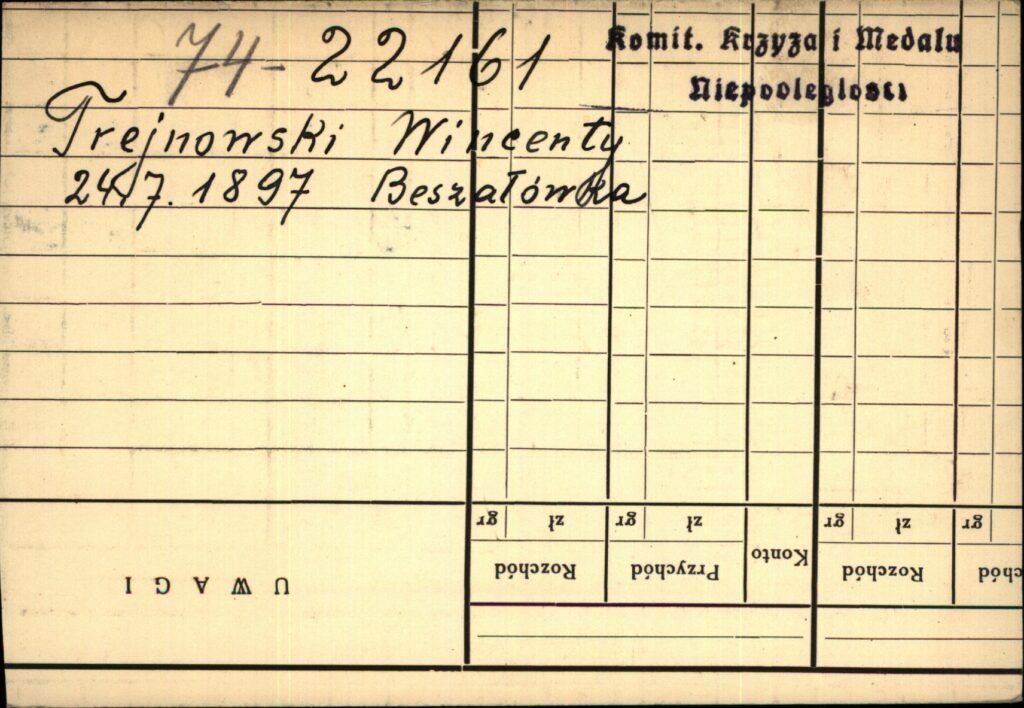 74-22161
Komit. Krzyża i Medalu
Niepodległości
Trejnowski Wincenty
24.7.1897 Beszałówka
gr zł gr zł gr zł gr
Rozchód Przychód Konto Rozchód chód
UWAGI